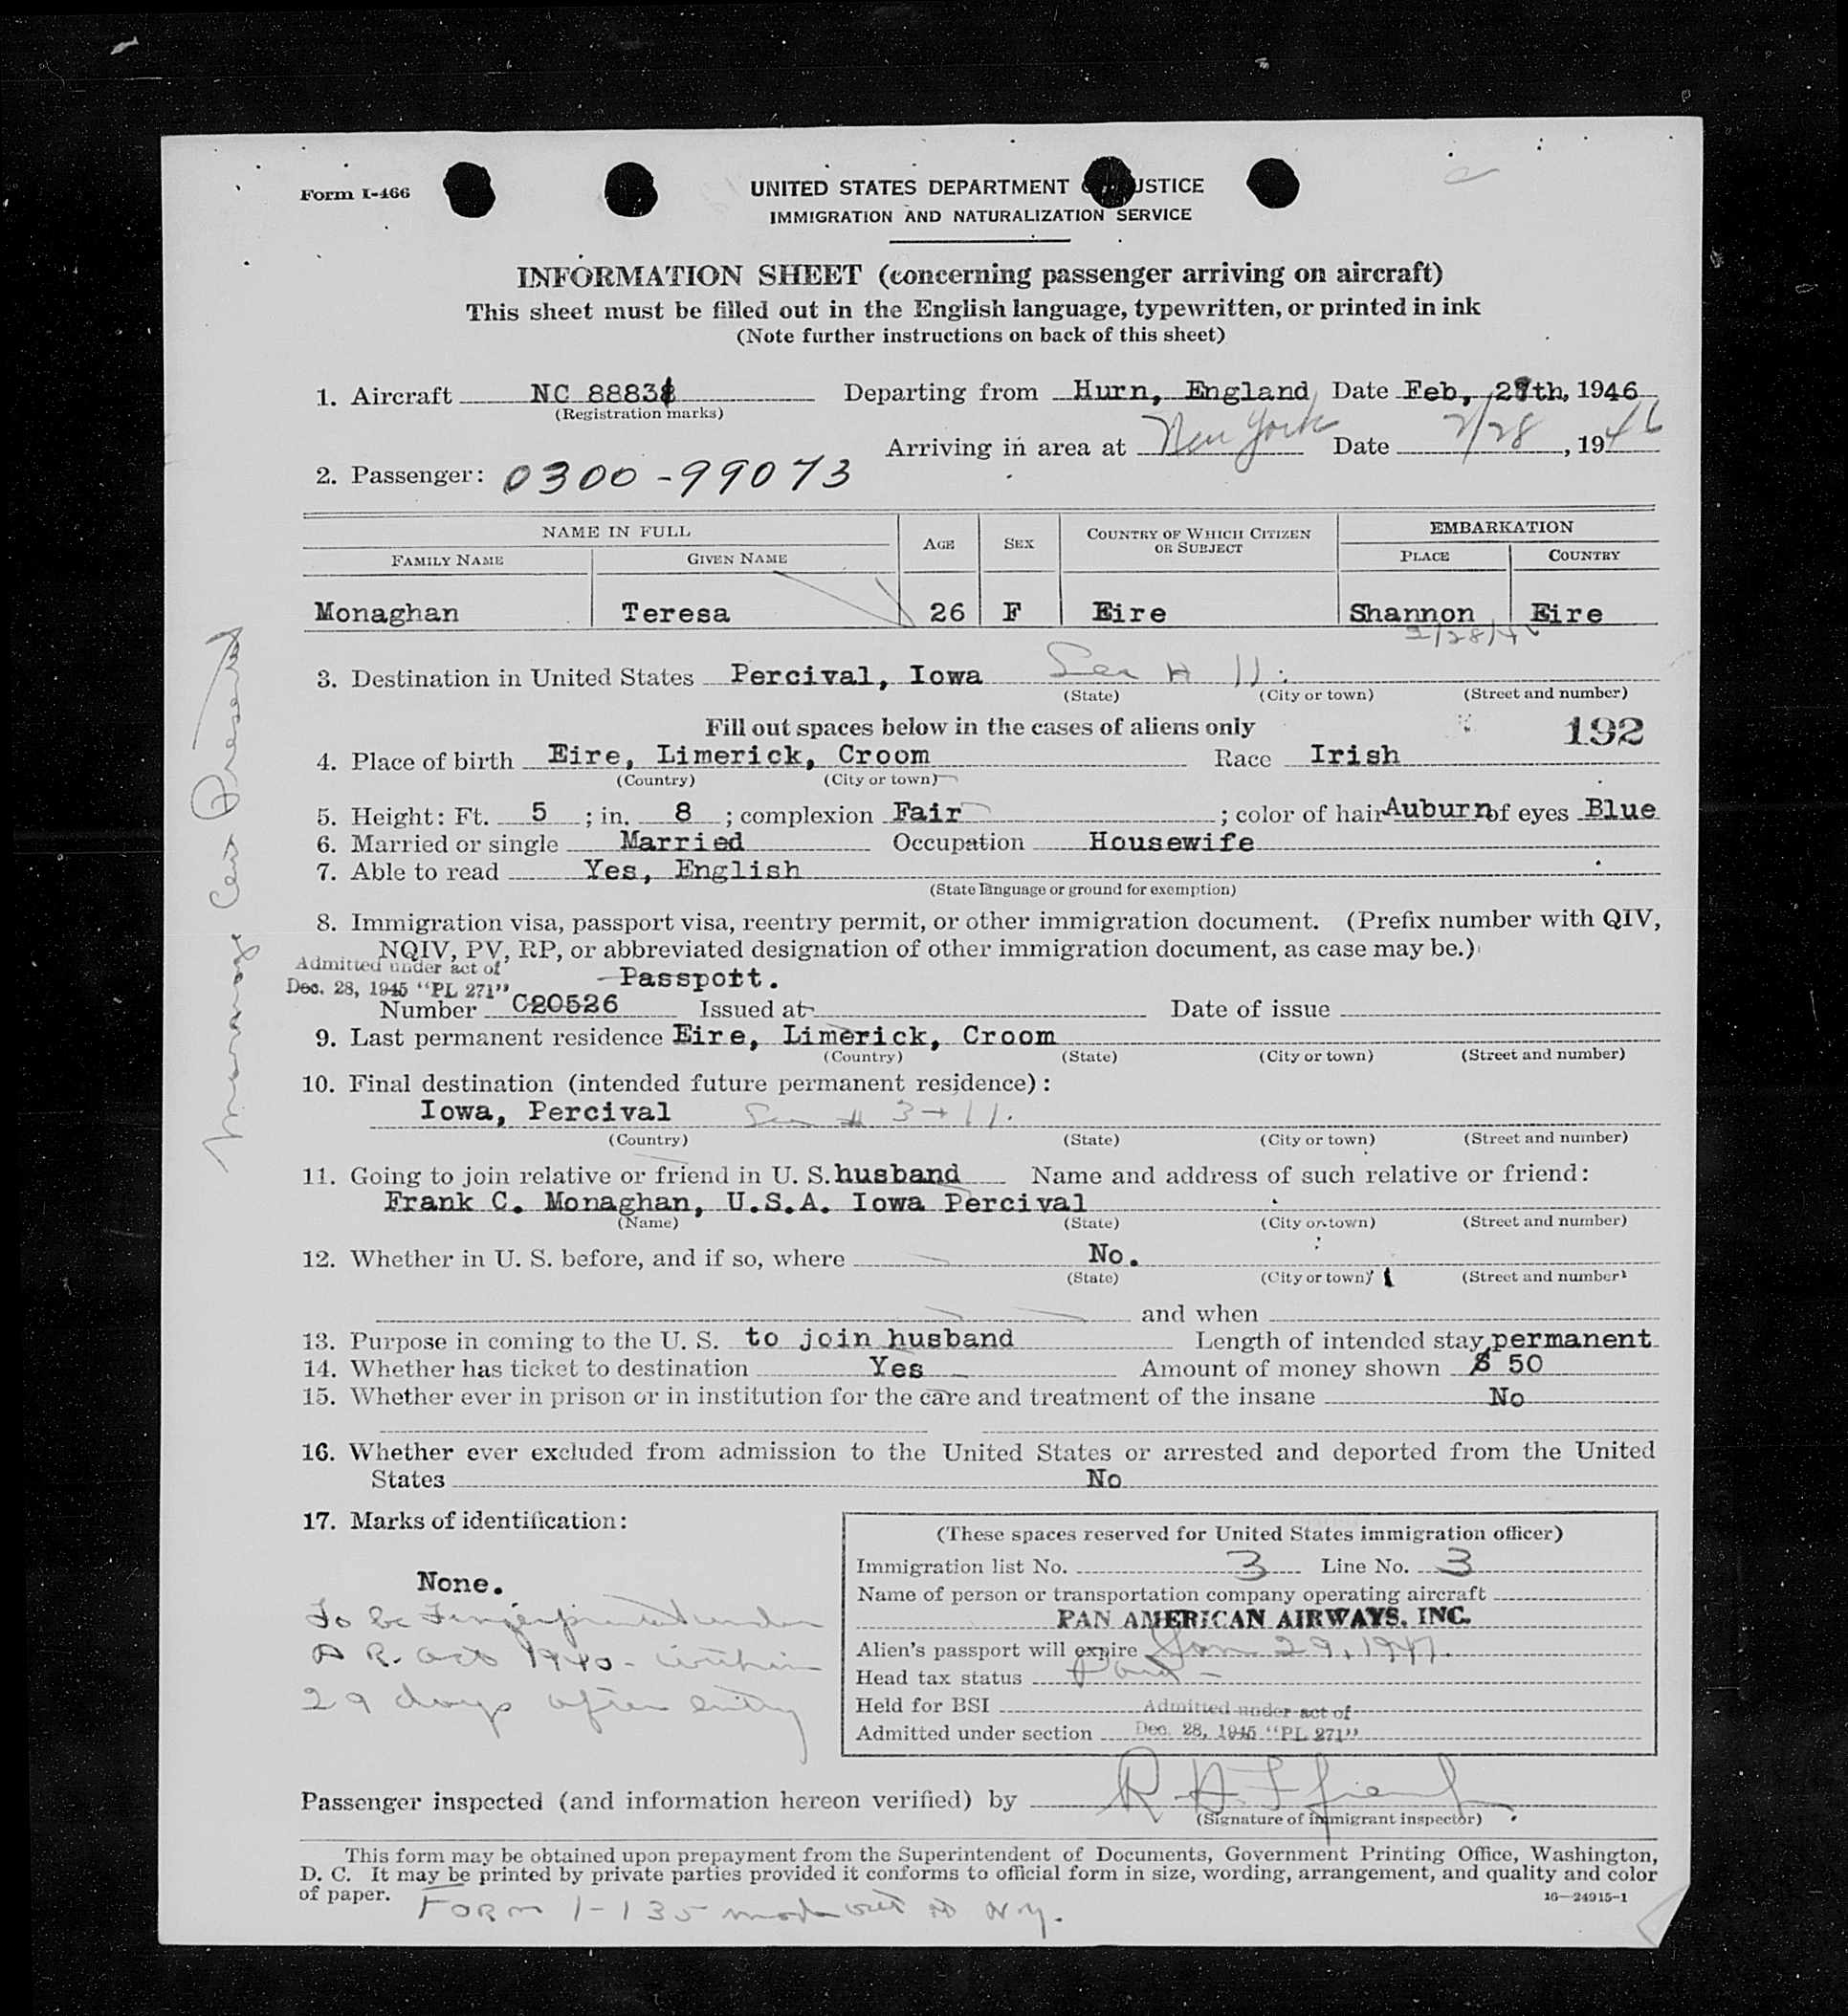 Form I-466
UNITED STATES DEPARTMENT JUSTICE
IMMIGRATION AND NATURALIZATION SERVICE
INFORMATION SHEET (concerning passenger arriving on aircraft)
This sheet must be filled out in the English language, typewritten, or printed in ink
(Note further instructions on back of this sheet)
1. Aircraft NC 88838 Departing from Hurn, England Date Feb, 27th, 1946
(Registration marks)
Arriving in area at New York Date 2/28, 1946
2. Passenger: 0300-99073
NAME IN FULL AGE SEX COUNTRY OF WHICH CITIZEN OR SUBJECT EMBARKATION
FAMILY NAME GIVEN NAME PLACE COUNTRY
Monaghan Teresa 26 F Eire Shannon Eire
2/28/46
3. Destination in United States Percival, Iowa See # 11.
(State) (City or town) (Street and number)
Fill out spaces below in the cases of aliens only 192
4. Place of birth Eire, Limerick, Croom Race Irish
(Country) (City or town)
5. Height: Ft. 5 ; in. 8 ; complexion Fair ; color of hair Auburn of eyes Blue
6. Married or single Married Occupation Housewife
7. Able to read Yes, English
(State language or ground for exemption)
8. Immigration visa, passport visa, reentry permit, or other immigration document. (Prefix number with QIV,
NQIV, PV, RP, or abbreviated designation of other immigration document, as case may be.)
Admitted under act of
Dec. 28, 1945 "PL 271"
Passpott.
Number C20526 Issued at Date of issue
9. Last permanent residence Eire, Limerick, Croom
(Country) (State) (City or town) (Street and number)
10. Final destination (intended future permanent residence):
Iowa, Percival See # 3 + 11.
(Country) (State) (City or town) (Street and number)
11. Going to join relative or friend in U. S. husband Name and address of such relative or friend:
Frank C. Monaghan, U.S.A. Iowa Percival
(Name) (State) (City or town) (Street and number)
12. Whether in U. S. before, and if so, where No.
(State) (City or town) (Street and number)
and when
13. Purpose in coming to the U. S. to join husband Length of intended stay permanent
14. Whether has ticket to destination Yes Amount of money shown $ 50
15. Whether ever in prison or in institution for the care and treatment of the insane No
16. Whether ever excluded from admission to the United States or arrested and deported from the United
States No
17. Marks of identification:
None.
To be Fingerprinted under
A R. act 1940 - within
29 days after entry
(These spaces reserved for United States immigration officer)
Immigration list No. 3 Line No. 3
Name of person or transportation company operating aircraft
PAN AMERICAN AIRWAYS, INC.
Alien's passport will expire Jan 29, 1947.
Head tax status Paid -
Held for BSI
Admitted under act of
Admitted under section Dec. 28, 1945 "PL 271"
Passenger inspected (and information hereon verified) by
(Signature of immigrant inspector)
This form may be obtained upon prepayment from the Superintendent of Documents, Government Printing Office, Washington,
D. C. It may be printed by private parties provided it conforms to official form in size, wording, arrangement, and quality and color
of paper.
16—24915-1
Form I-135 made out at N.Y.
Marriage Cert Presented